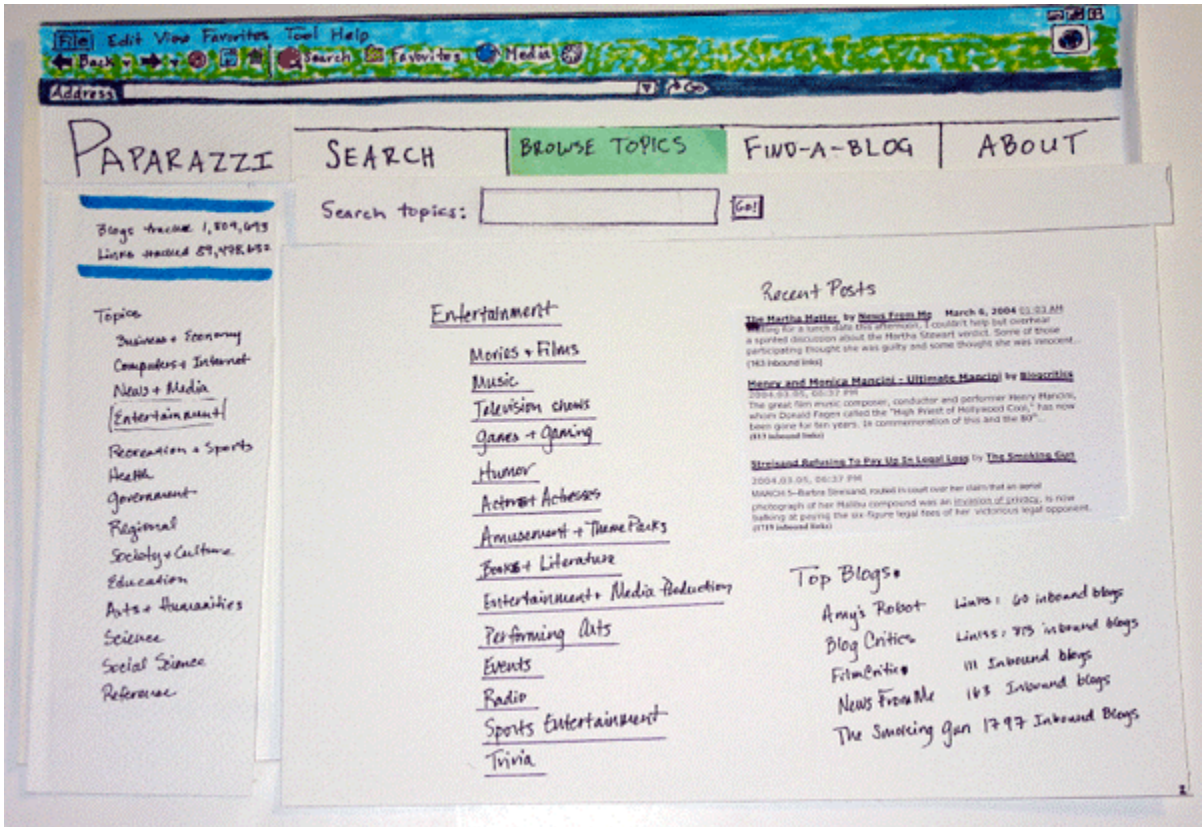 File Edit View Favorites Tool Help
Back Search Favorites Media
Address Go
PAPARAZZI
SEARCH
BROWSE TOPICS
FIND-A-BLOG
ABOUT
Search topics: Go!
Blogs tracked 1,809,693
Links tracked 89,498,632
Topics
Business + Economy
Computers + Internet
News + Media
Entertainment
Recreation + Sports
Health
Government
Regional
Society + Culture
Education
Arts + Humanities
Science
Social Science
Reference
Entertainment
Movies + Films
Music
Television shows
Games + Gaming
Humor
Actors + Actresses
Amusement + Theme Parks
Books + Literature
Entertainment + Media Production
Performing Arts
Events
Radio
Sports Entertainment
Trivia
Recent Posts
The Martha Matter by News From Me March 6, 2004 01:03 AM
for a lunch date this afternoon, I couldn't help but overhear
a spirited discussion about the Martha Stewart verdict. Some of those
participating thought she was guilty and some thought she was innocent...
(163 inbound links)
Henry and Monica Mancini - Ultimate Mancini by Blogcritics
2004.03.05, 06:37 PM
The great film music composer, conductor and performer Henry Mancini,
whom Donald Fagen called the "High Priest of Hollywood Cool," has now
been gone for ten years. In commemoration of this and the 80th...
(813 inbound links)
Streisand Refusing To Pay Up In Legal Loss by The Smoking Gun
2004.03.05, 06:37 PM
MARCH 5--Barbra Streisand, routed in court over her claim that an aerial
photograph of her Malibu compound was an invasion of privacy, is now
balking at paying the six-figure legal fees of her victorious legal opponent.
(1719 inbound links)
Top Blogs
Amy's Robot Links: 60 inbound blogs
Blog Critics Links: 813 inbound blogs
Film Critic 111 Inbound blogs
News From Me 163 Inbound blogs
The Smoking Gun 1797 Inbound Blogs